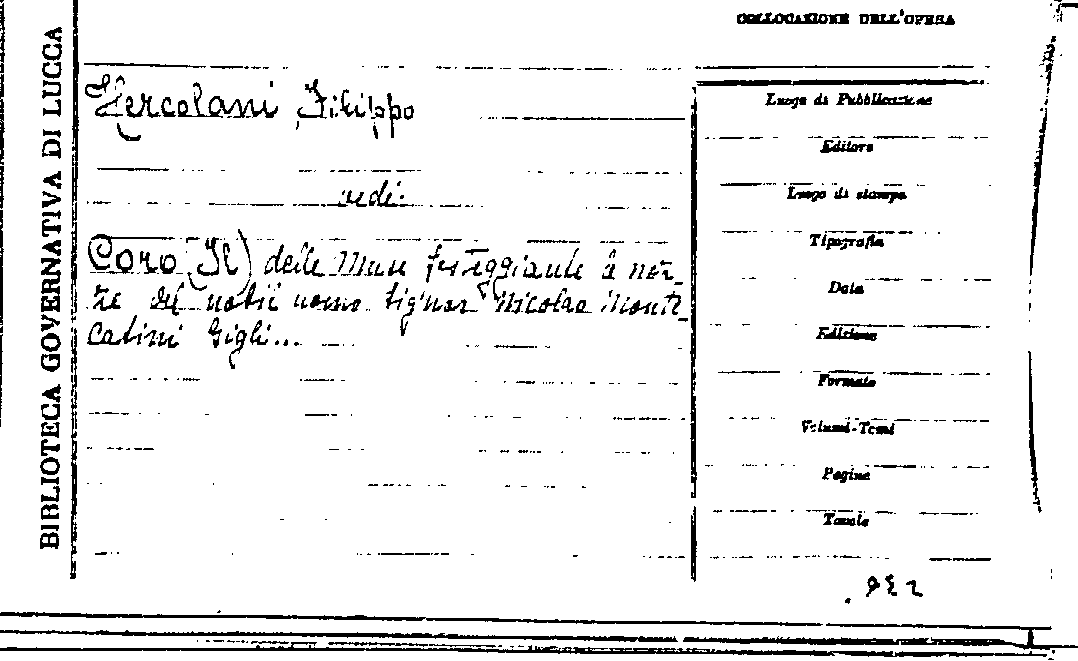 COLLOCAZIONE DELL'OPERA
BIBLIOTECA GOVERNATIVA DI LUCCA
Hercolani, Filippo
vedi:
Coro (Il) delle Muse festeggiante le noz-
ze del nobil uomo signor Nicolao Monte-
catini Gigli...
Luogo di Pubblicazione
Editore
Luogo di stampa
Tipografia
Data
Edizione
Formato
Volumi-Tomi
Pagine
Tavole